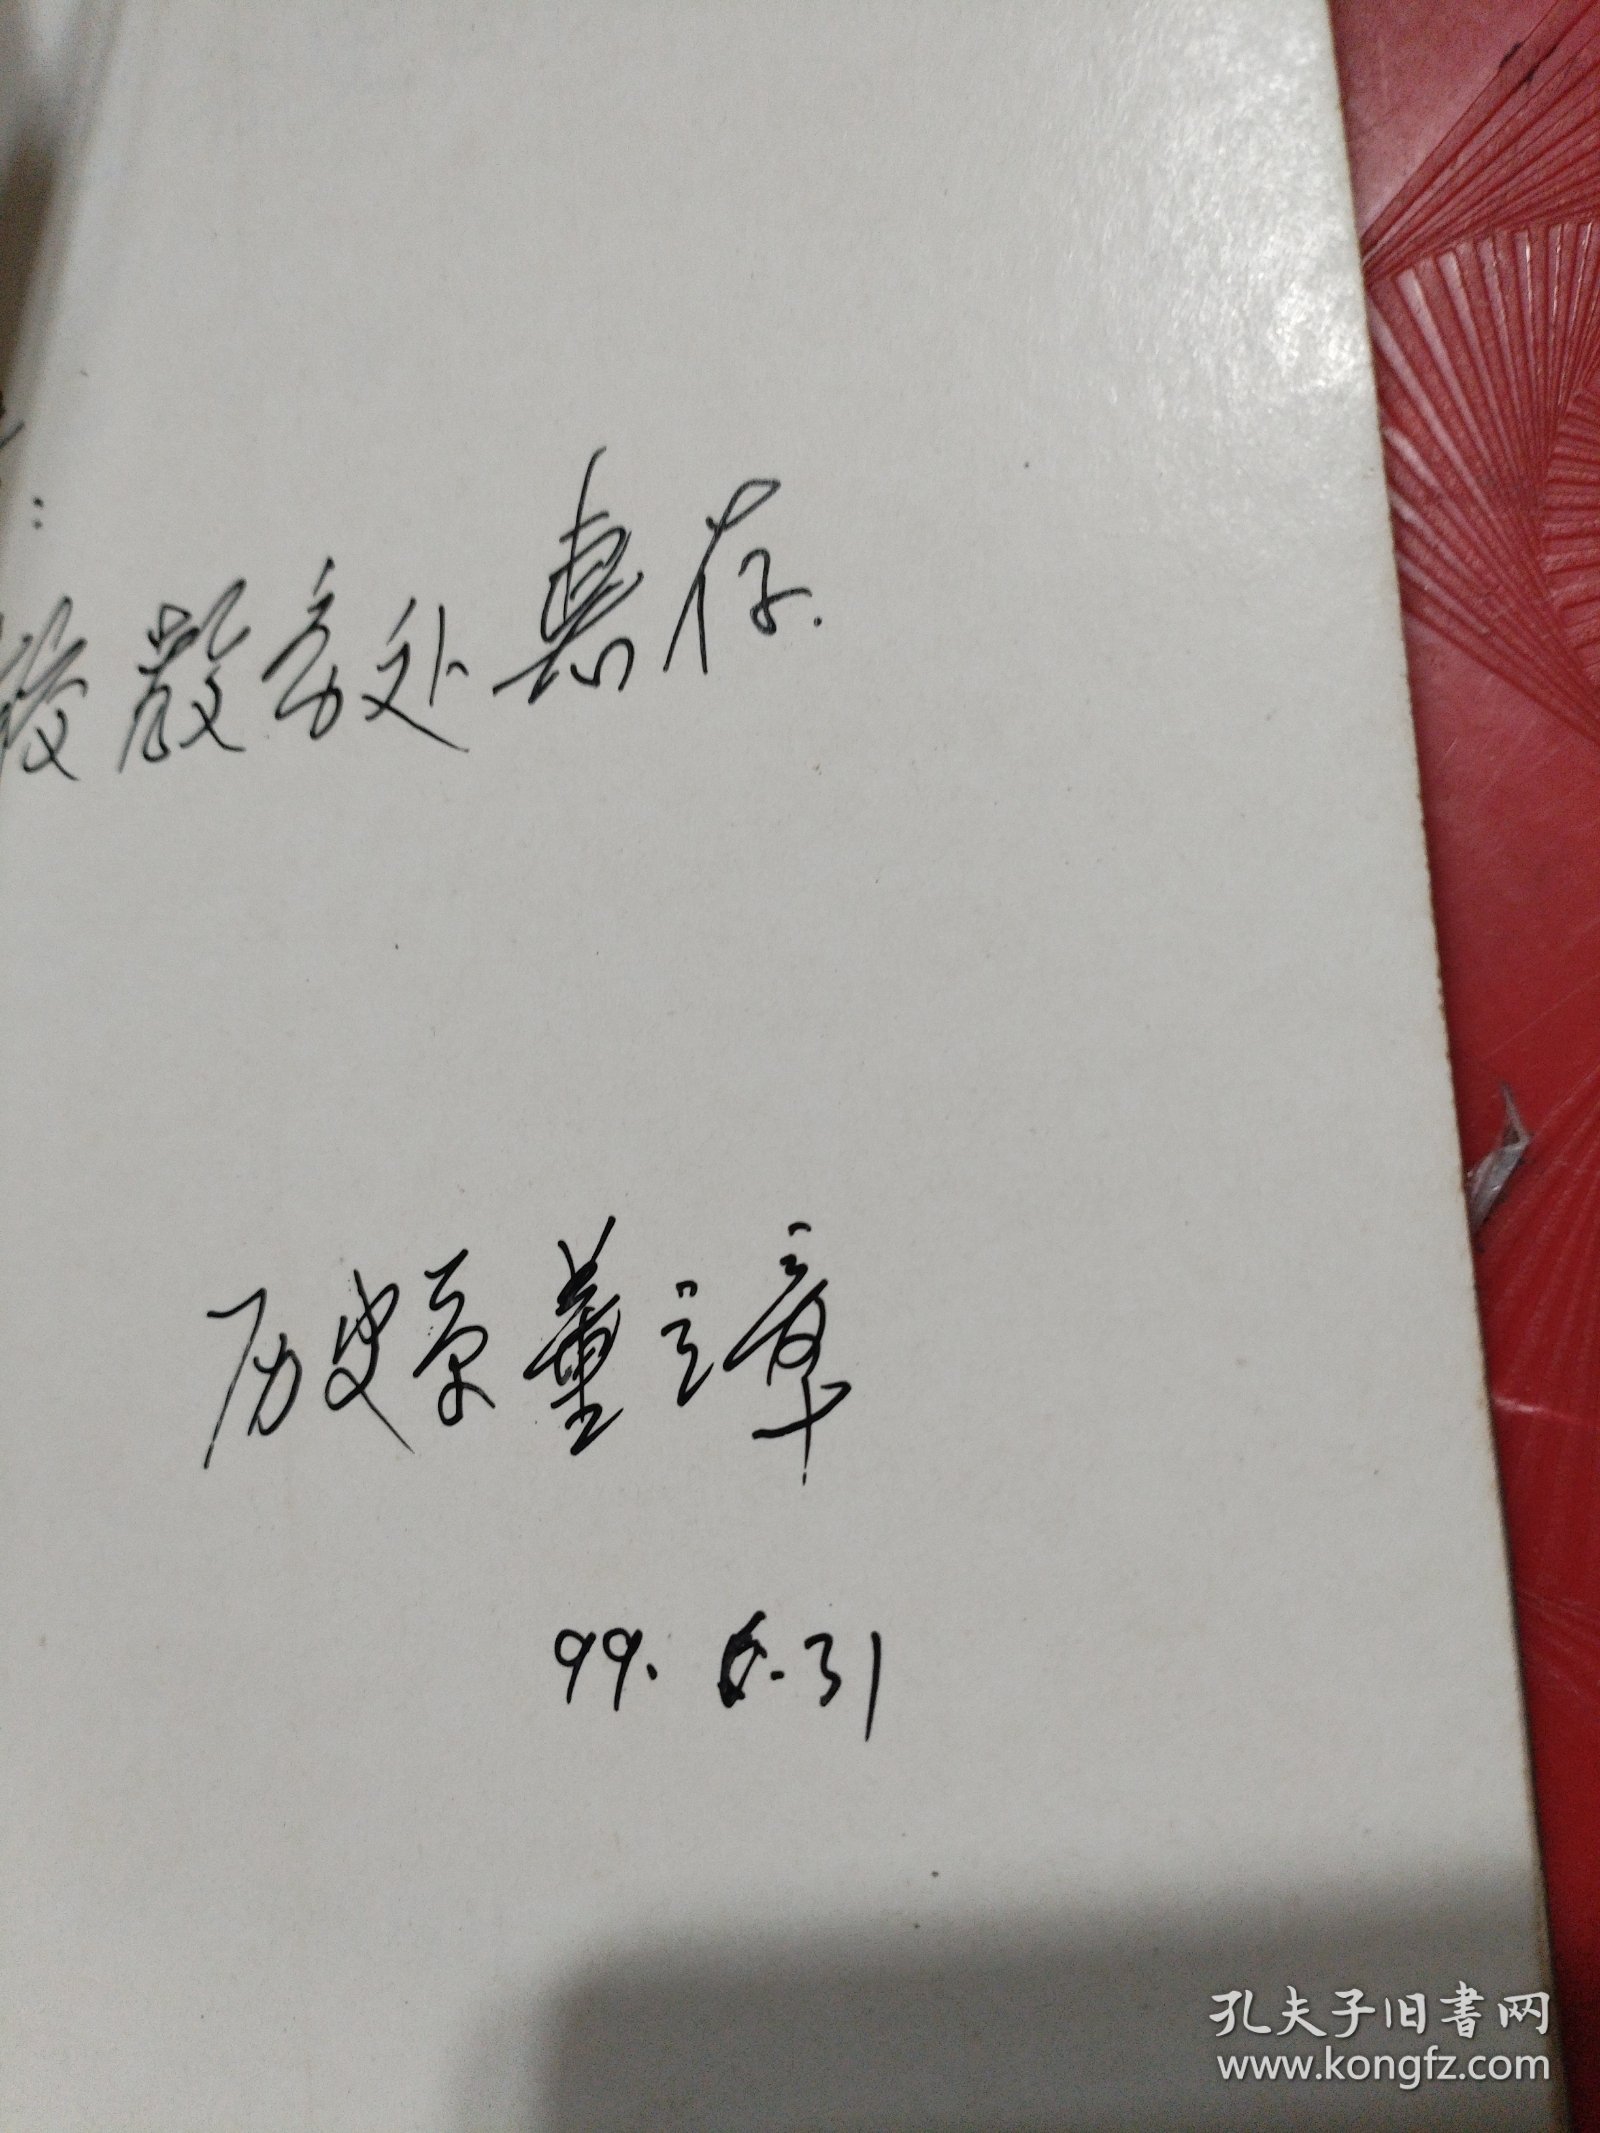 :
处惠存.
历史系董立章
99. .31
孔夫子旧书网
www.kongfz.com